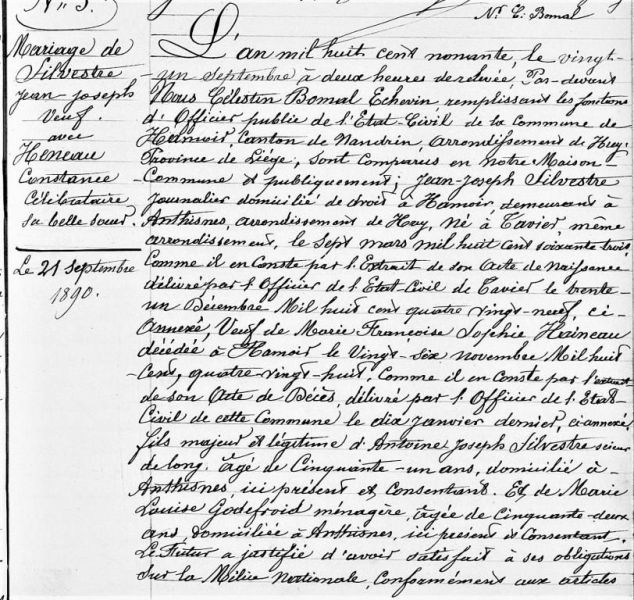 N° 3.
N. C. Bomal
Mariage de
Silvestre
Jean-Joseph
Veuf.
avec
Heneau
Constance
Célibataire
Sa belle soeur.
Le 21 Septembre
1890.
L'an mil huit cent nonante, le vingt-
-un Septembre à deux heures de relevée, Par-devant
Nous Célestin Bomal Echevin remplissant les fonctions
d'Officier publie de l'Etat-Civil de la Commune de
Hamoir, Canton de Nandrin, arrondissement de Huy,
Province de Liége, sont comparus en notre Maison
Commune et publiquement; Jean-Joseph Silvestre
journalier domicilié de droit à Hamoir, demeurant à
Anthisnes, arrondissement de Huy, né à Tavier, même
arrondissement, le Sept mars mil huit cent soixante trois
Comme il en Conste par l'Extrait de son Acte de Naissance
délivré par l'Officier de l'Etat Civil de Tavier le trente
un Décembre Mil huit cent quatre vingt-neuf, ci-
Annexé, Veuf de Marie Françoise Sophie Haineau
décédée à Hamoir le Vingt-six novembre Mil huit
Cent, quatre-vingt-huit, Comme il en Conste par l'extrait
de son Acte de Décès, délivré par l'Officier de l'Etat-
Civil de cette Commune le dix janvier dernier, ci-annexé
fils majeur et légitime d'Antoine Joseph Silvestre scieur
de long, âgé de Cinquante-un ans, domicilié à
Anthisnes, ici présent et Consentant. Et de Marie
Louise Godefroid ménagère, âgée de Cinquante-deux
ans, domiciliée à Anthisnes, ici présent et Consentant.
Le Futur a justifié d'avoir satisfait à ses obligations
Sur la Milice Nationale, Conformément aux articles